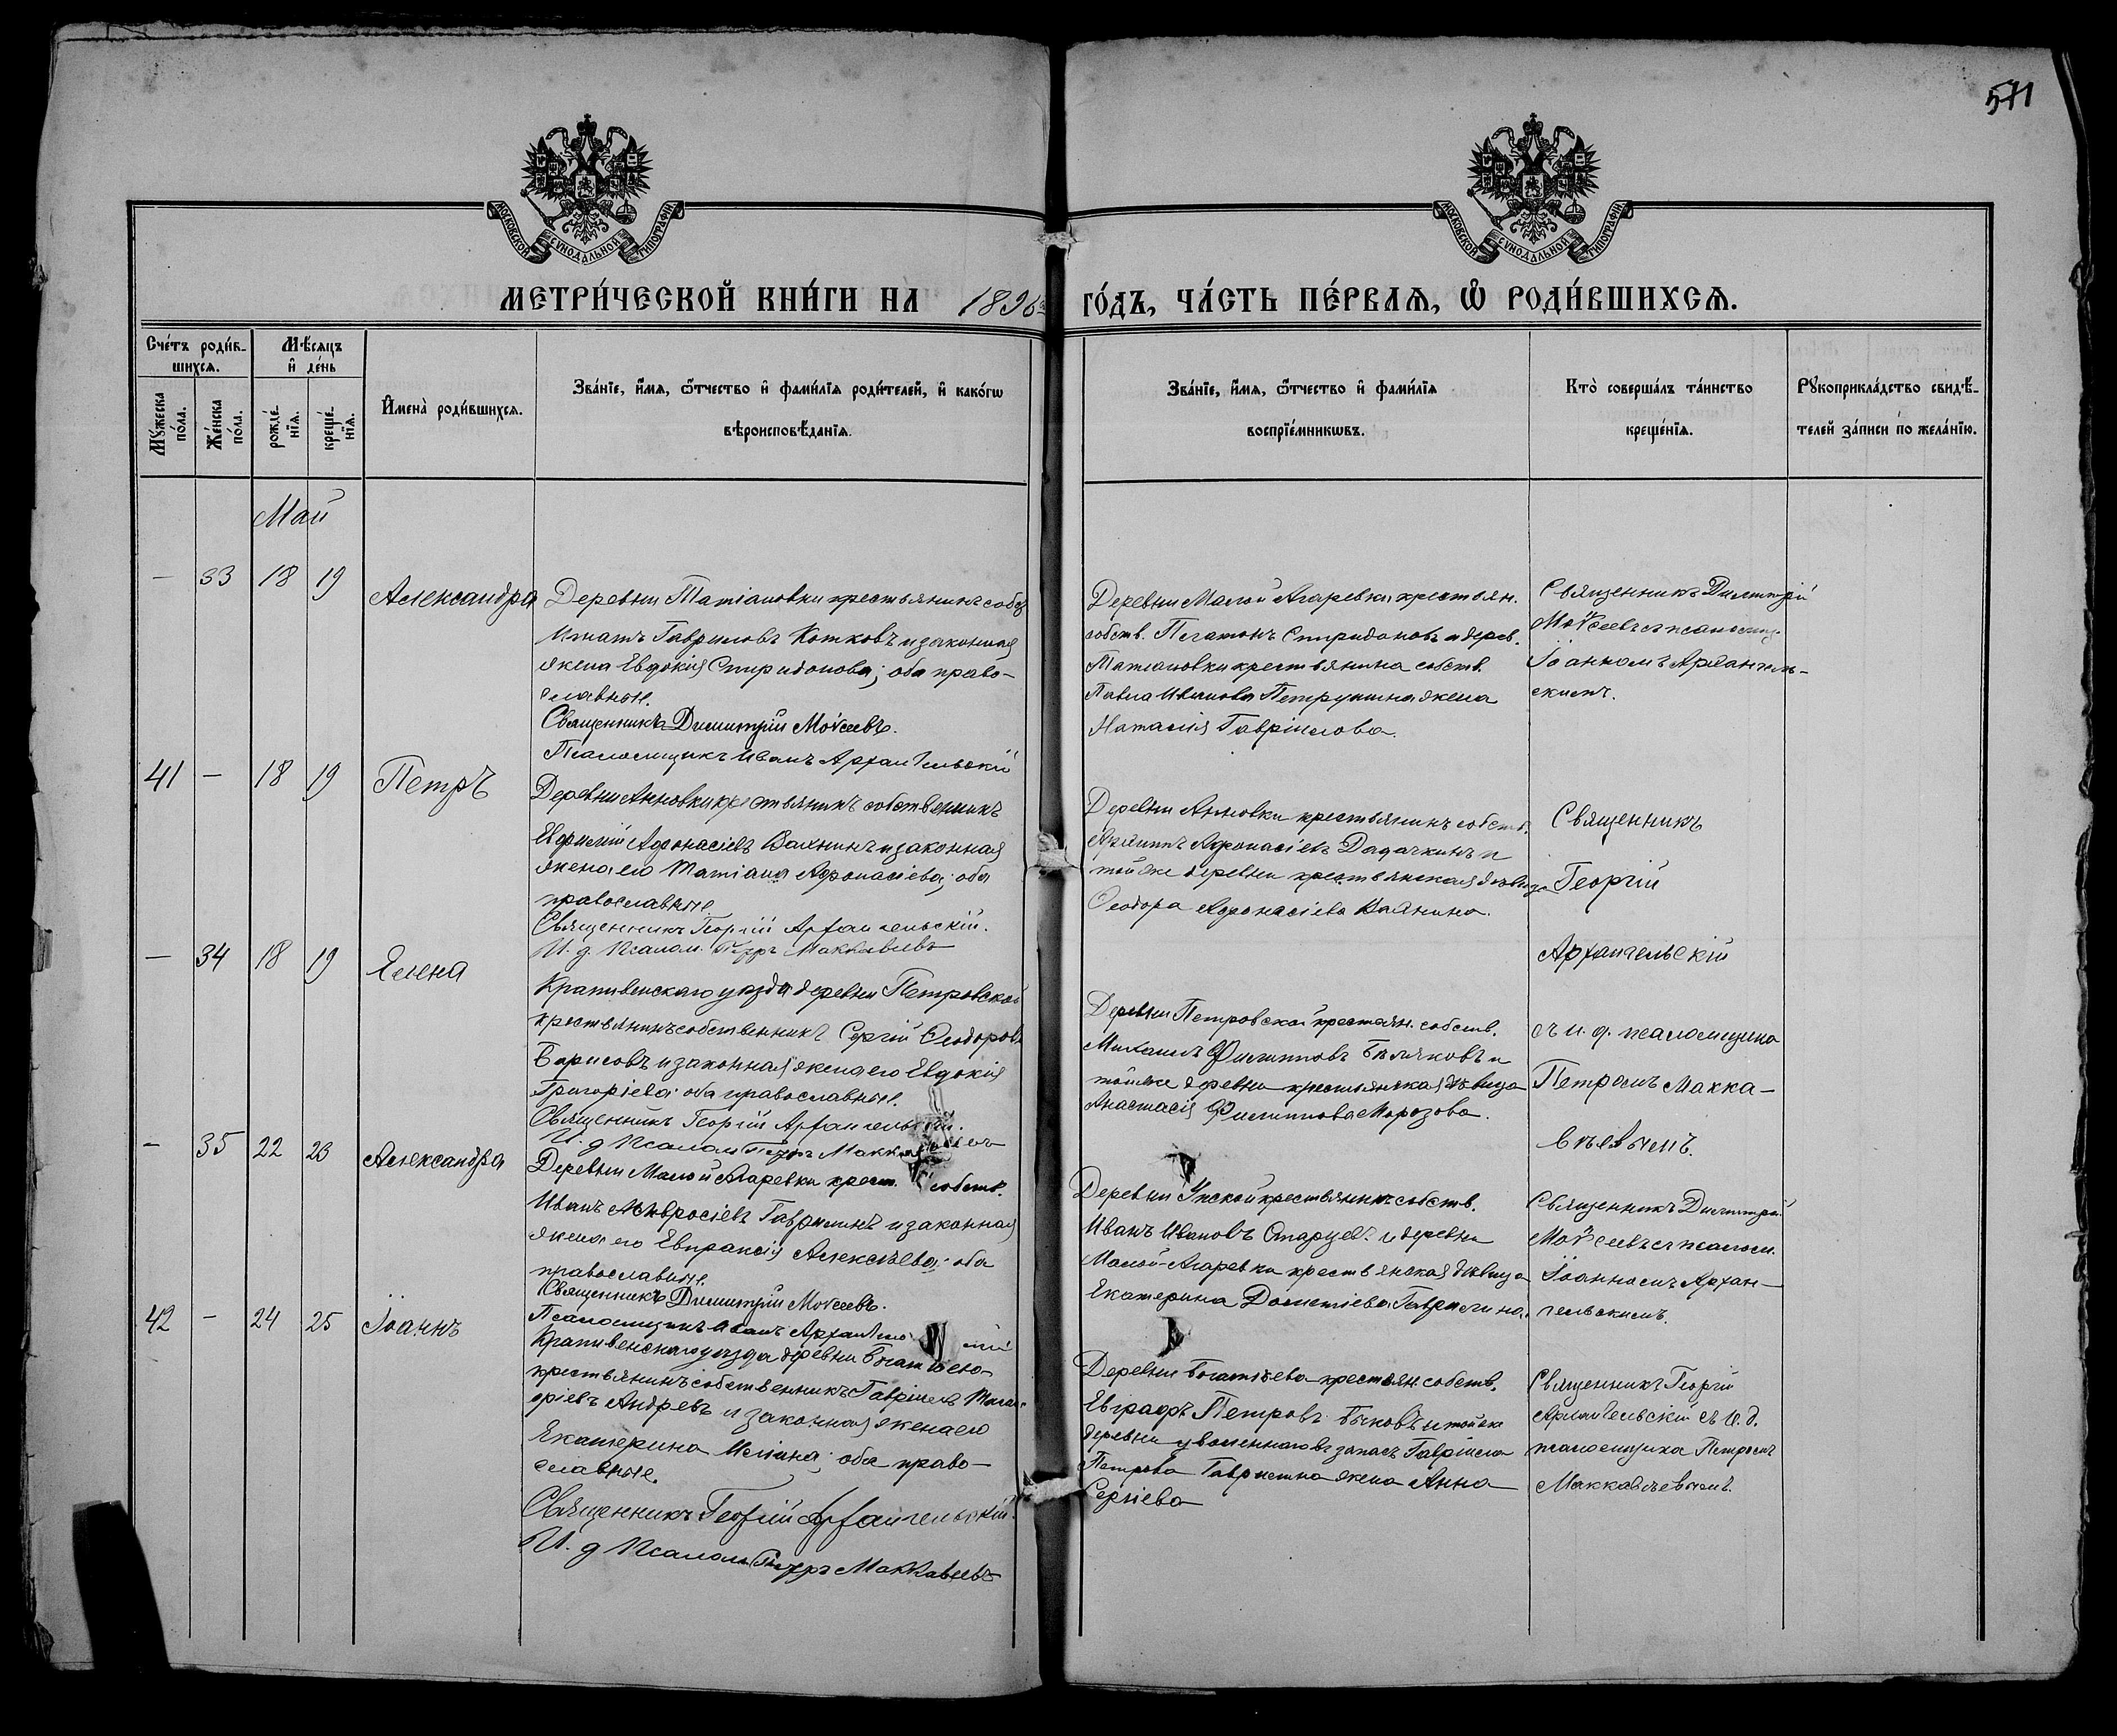 571
МОСКОВСКОЙ СѴНОДАЛЬНОЙ ТИПОГРАФІИ
МОСКОВСКОЙ СѴНОДАЛЬНОЙ ТИПОГРАФІИ
МЕТРИ́ЧЕСКОЙ КНИ́ГИ НА 1896 ГО́ДЪ, ЧА́СТЬ ПЕ́РВАѦ, Ѡ҆ РОДИ́ВШИХСѦ.
Сче́тъ роди́в-
шихсѧ.
Мѣ́сѧцъ
и҆ де́нь
Мꙋ́жеска
по́ла.
Же́нска
по́ла.
рожде́-
нїѧ.
креще́-
нїѧ.
И҆мена̀ роди́вшихсѧ.
Зва́нїе, и҆́мѧ, ѻ҆́тчество и҆ фами́лїѧ роди́телей, и҆ како́гѡ
вѣроисповѣ́данїѧ.
Зва́нїе, и҆́мѧ, ѻ҆́тчество и҆ фами́лїѧ
воспрїе́мникѡвъ.
Кто̀ соверша́лъ та́инство
креще́нїѧ.
Рꙋкоприкла́дство свидѣ́-
телей за́писи по жела́нїю.
Май
— 33 18 19
Александра
Деревни Татіановки крестьянинъ собс
Игнатъ Гавриловъ Котковъ и законная
жена Евдокія Спиридонова; оба право-
славные.
Священникъ Димитрій Моѵсеевъ.
Псаломщикъ Иванъ Архангельскій
Деревни Малой Агаревки крестьян.
собств. Платонъ Спиридоновъ и дерев.
Татіановки крестьянина собств.
Павла Иванова Петрунина жена
Наталія Гавріилова.
Священникъ Димитрій
Моѵсеевъ съ псаломщ.
Іоанномъ Архангель-
скимъ.
41 — 18 19
Петръ
Деревни Анновки крестьянинъ собственникъ
Евфимій Афонасіевъ Ванинъ и законная
жена его Татіана Афонасіева; оба
православные.
Священникъ Георгій Архангельскій.
И. д. Псалом. Петръ Маккавеевъ
Деревни Анновки крестьянинъ собств.
Архиппъ Афонасіевъ Дадачкинъ и
той же деревни крестьянская дѣвица
Ѳеодора Афонасіева Ванина.
Священникъ
Георгій
Архангельскій
съ и. д. псаломщика
Петромъ Макка-
вѣевымъ.
— 34 18 19
Елена
Крапивенскаго уѣзда деревни Петровской
крестьянинъ собственникъ Сергій Ѳеодоровъ
Борисовъ и законная жена его Евдокія
Григоріева; оба православные.
Священникъ Георгій Архангельскій.
И. д Псалом Петръ
Деревни Петровской крестьян. собств.
Михаилъ Филипповъ Бѣляковъ и
той же деревни крестьянская дѣвица
Анастасія Филиппова Морозова.
— 35 22 23
Александра
Деревни Малой Агаревки крест. собств.
Иванъ Амвросіевъ Гаврилинъ и законная
жена его Евпраксія Алексѣева; оба
православные.
Священникъ Димитрій Моѵсеевъ.
Псаломщикъ Иванъ
Деревни Упской крестьянинъ собств.
Иванъ Ивановъ Старцевъ и деревни
Малой-Агаревки крестьянская дѣвица
Екатерина Дометіева Гаврилина.
Священникъ Димитрій
Моѵсеевъ съ псалом.
Іоанномъ Архан-
гельскимъ.
42 — 24 25
Іоаннъ
Крапивенскаго уѣзда деревни
крестьянинъ собственникъ Гавріилъ
Андреевъ и законная жена его
Екатерина Ильина; оба право-
славные.
Священникъ Георгій Архангельскій.
И. д Псалом Петръ Маккавеевъ
Деревни Богатѣева крестьян. собств.
Евграфъ Петровъ Быковъ и той же
деревни уволеннаго въ запасъ Гавріила
Петрова Гаврилина жена Анна
Сергіева
Священникъ Георгій
Архангельскій съ и. д.
псаломщика Петромъ
Маккавѣевымъ.